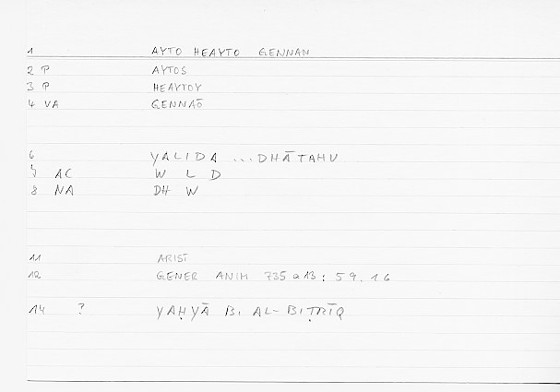 1 AYTO HEAYTO GENNAN
2 P AYTOS
3 P HEAYTOY
4 VA GENNAŌ
6 YALIDA ... DHĀTAHU
7 AC W L D
8 NA DH W
11 ARIST
12 GENER ANIM 735 a 13 : 59.16
14 ? YAḤYĀ B. AL-BIṬRĪQ